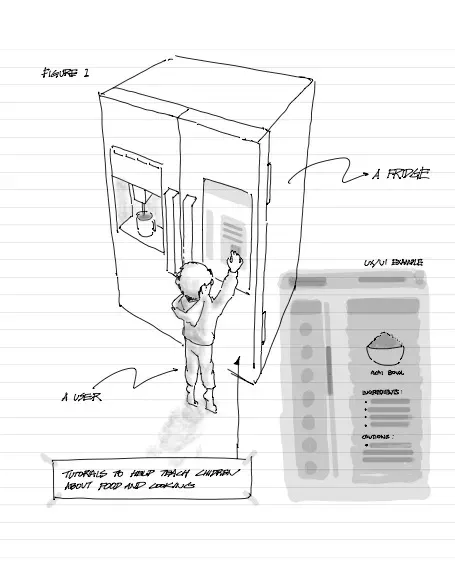 FIGURE 1
A FRIDGE
UX/UI EXAMPLE
ACAI BOWL
INGREDIENTS:
CAUTIONS:
A USER
TUTORIALS TO HELP TEACH CHILDREN
ABOUT FOOD AND COOKING